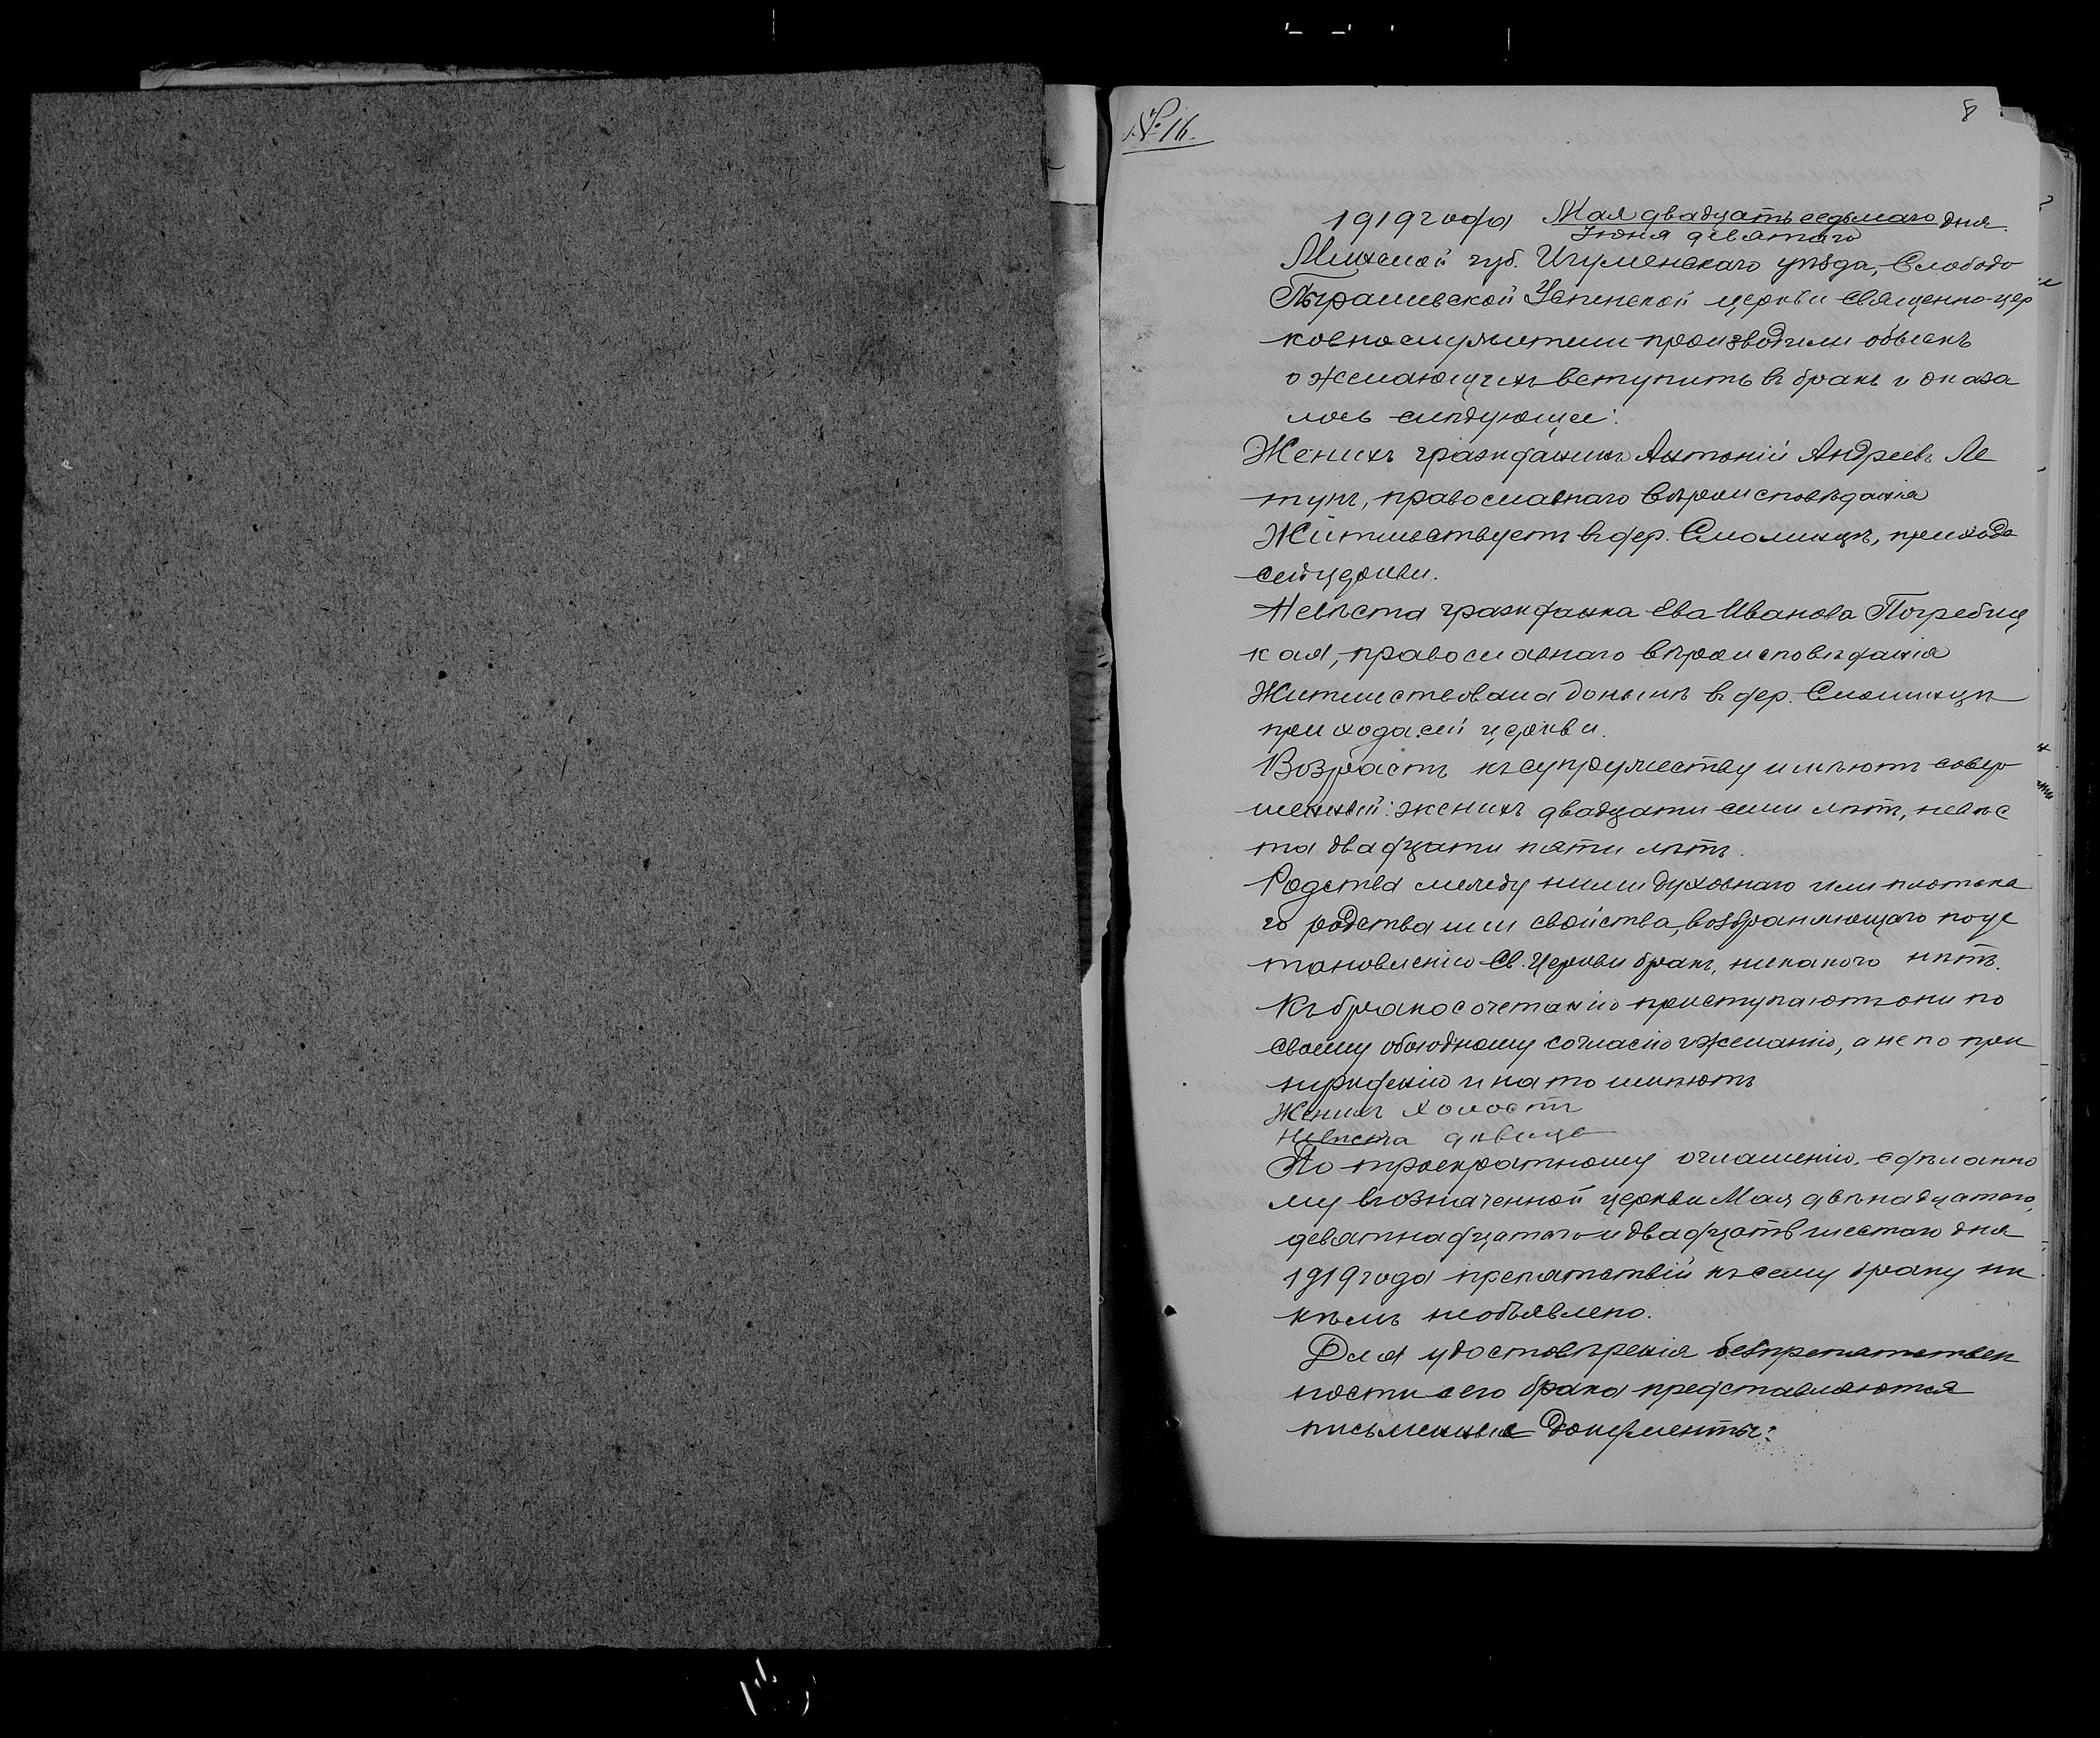 № 16.
8
1919 года Мая двадцать седьмаго дня.
Iюня девятаго
Минской губ. Игуменскаго уѣзда, Слободо
Пырашевской Успенской церкви священно-цер
ковнослужители производили обыскъ
о желающихъ вступить въ бракъ и оказа
лось слѣдующее:
Женихъ гражданинъ Антонiй Андреевъ Ле
тунъ, православнаго вѣроисповѣданiя
Жительствуетъ въ дер. Смолинцѣ, прихода
сей церкви.
Невѣста гражданка Ева Иванова Погребиц
кая, православнаго вѣроисповѣданiя
Жительствовала донынѣ въ дер. Смолинцѣ
прихода сей церкви.
Возрастъ къ супружеству имѣютъ совер
шенный: женихъ двадцати семи лѣтъ, невѣс
та двадцати пяти лѣтъ.
Родства между ними духовнаго или плотска
го родства или свойства, возбраняющаго по ус
тановленiю Св. Церкви бракъ, никакого нѣтъ.
Къ бракосочетанiю приступаютъ они по
своему обоюдному согласiю и желанiю, а не по при
нужденiю и на то имѣютъ
Женихъ холостъ
Невѣста дѣвица
По троекратному оглашенiю, сдѣланно
му въ означенной церкви Мая двѣнадцатаго,
девятнадцатаго и двадцать шестаго дня
1919 года препятствiй къ сему браку ни
кѣмъ не объявлено.
Для удостовѣренiя безпрепятствен
ности сего брака представляются
письменные документы: